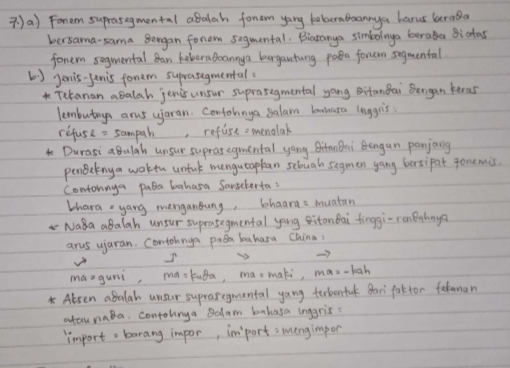 7.) a) Fonem suprasegmental adalah fonem yang keberadaannya harus berada
bersama-sama dengan fonem segmental. Biasanya simbolnya berada di atas
fonem segmental dan keberadaannya bergantung pada fonem segmental
b.) Jenis-jenis fonem suprasegmental :
* Tekanan adalah jenis unsur suprasegmental yang ditandai dengan keras
lembutnya arus ujaran. Contohnya dalam bahasa Inggris :
réfuse = sampah, refúse = menolak
* Durasi adalah unsur suprasegmental yang ditandai dengan panjang
pendeknya waktu untuk mengucapkan sebuah segmen yang bersifat fonemis.
Contohnya pada bahasa Sansekerta :
bhara = yang mengandung, bhaara = muatan
* Nada adalah unsur suprasegmental yang ditandai tinggi-rendahnya
arus ujaran. Contohnya pada bahasa China :
ma = guni, ma = kuda, ma = maki, ma = -kah
* Aksen adalah unsur suprasegmental yang terbentuk dari faktor tekanan
atau nada. Contohnya dalam bahasa inggris :
'import = barang impor, im'port = mengimpor